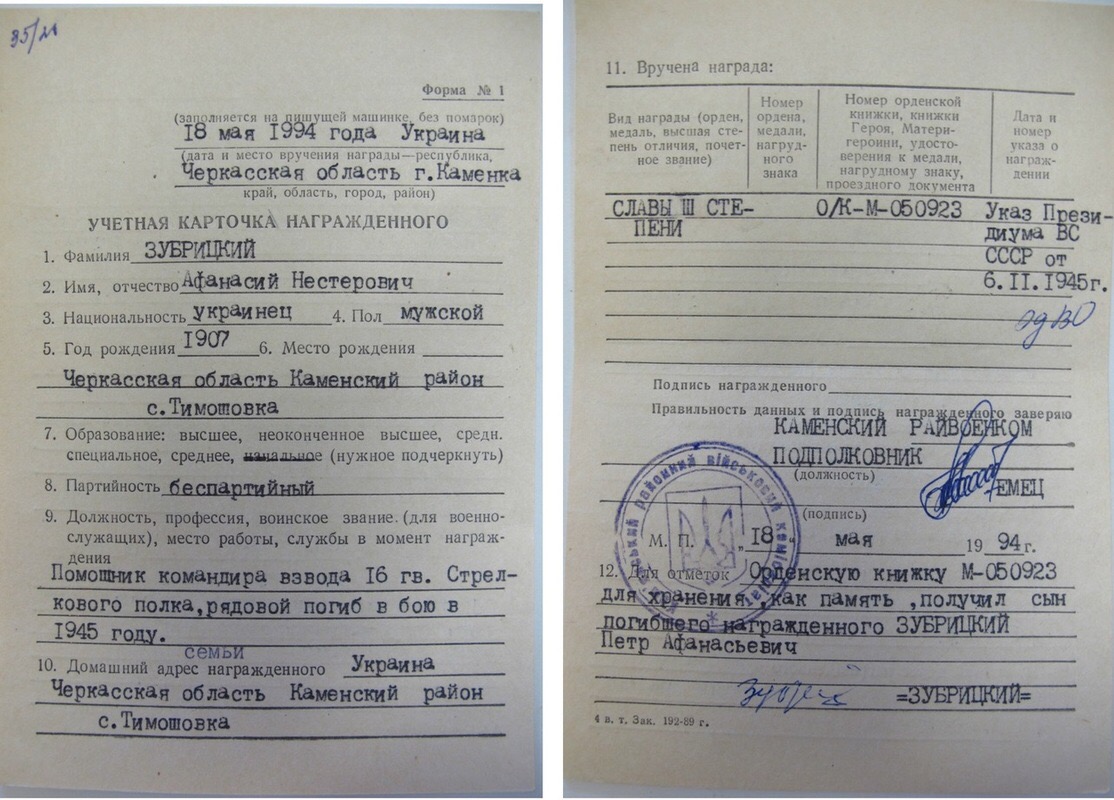 35/21
Форма № 1
(заполняется на пишущей машинке, без помарок)
18 мая 1994 года Украина
(дата и место вручения награды—республика,
Черкасская область г.Каменка
край, область, город, район)
УЧЕТНАЯ КАРТОЧКА НАГРАЖДЕННОГО
1. Фамилия ЗУБРИЦКИЙ
2. Имя, отчество Афанасий Нестерович
3. Национальность украинец 4. Пол мужской
5. Год рождения 1907 6. Место рождения
Черкасская область Каменский район
с.Тимошовка
7. Образование: высшее, неоконченное высшее, средн.
специальное, среднее, начальное (нужное подчеркнуть)
8. Партийность беспартийный
9. Должность, профессия, воинское звание (для военно-
служащих), место работы, службы в момент награж-
дения
Помошник командира взвода 16 гв. Стрел-
кового полка,рядовой погиб в бою в
1945 году.
семьи
10. Домашний адрес награжденного Украина
Черкасская область Каменский район
с.Тимошовка
11. Вручена награда:
Вид награды (орден, медаль, высшая сте-
пень отличия, почет-
ное звание)
Номер
ордена,
медали,
нагруд-
ного
знака
Номер орденской
книжки, книжки
Героя, Матери-
героини, удосто-
верения к медали,
нагрудному знаку,
проездного документа
Дата и
номер
указа о
награж-
дении
СЛАВЫ Ш СТЕ- О/К-М-050923 Указ Прези-
ПЕНИ диума ВС
СССР от
6.II.1945г.
Подпись награжденного
Правильность данных и подпись награжденного заверяю
КАМЕНСКИЙ РАЙВОЕНКОМ
ПОДПОЛКОВНИК
(должность)
ЕМЕЦ
(подпись)
М. П. „18" мая 19 94 г.
12. Для отметок Орденскую книжку М-050923
для хранения ,как память ,получил сын
погибшего награжденного ЗУБРИЦКИЙ
Петр Афанасьевич
=ЗУБРИЦКИЙ=
4 в. т. Зак. 192-89 г.
районний військовий комісаріат